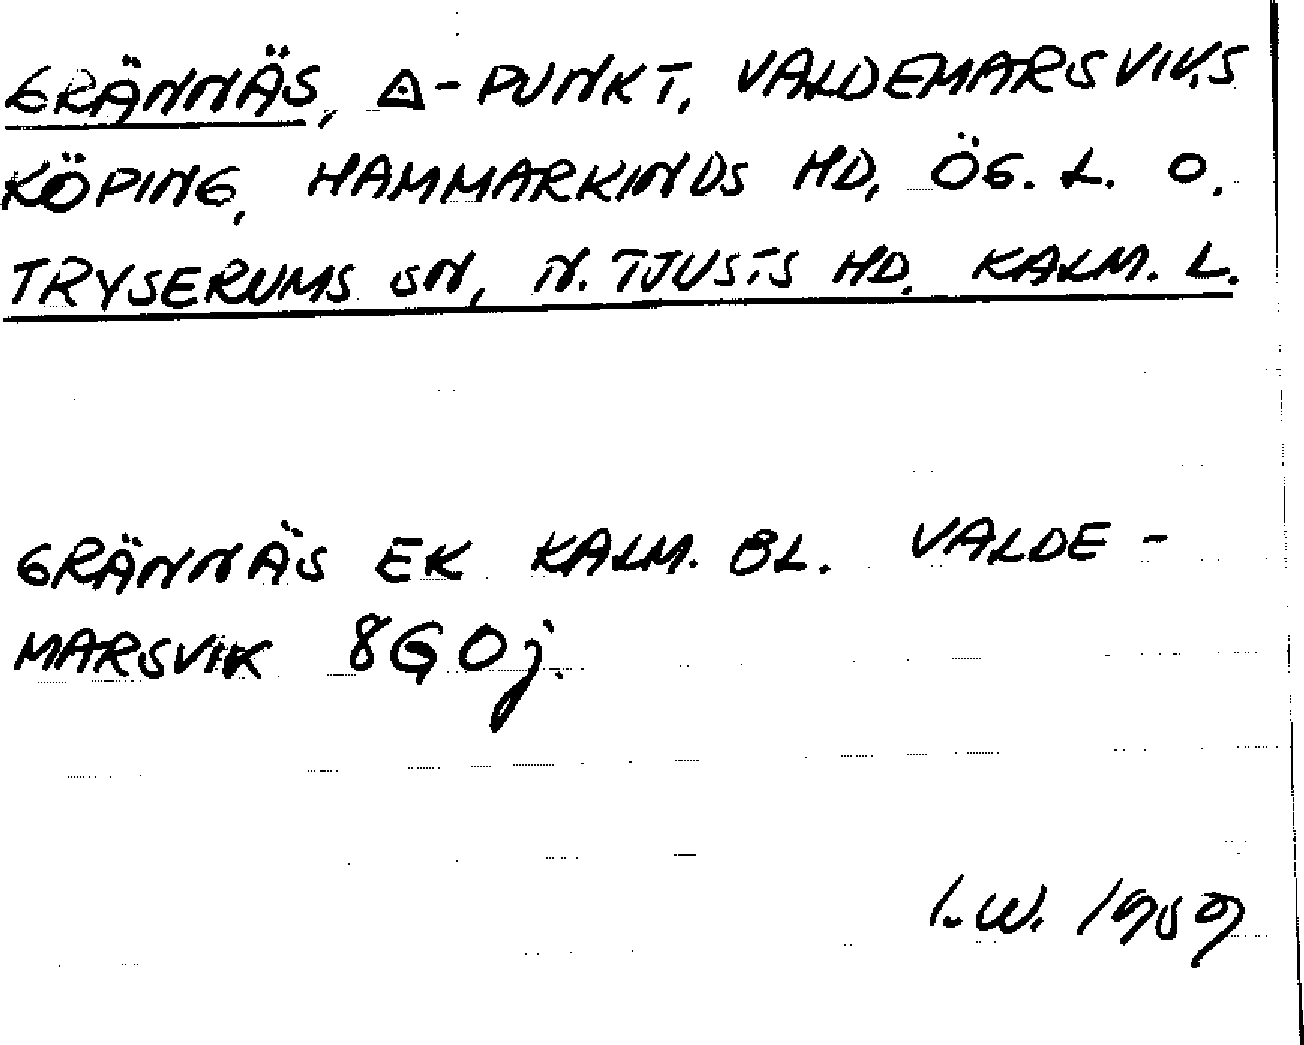 GRÄNNÄS, △-PUNKT, VALDEMARSVIKS
KÖPING, HAMMARKINDS HD, ÖG. L. O.
TRYSERUMS SN, N. TJUSTS HD. KALM. L.
GRÄNNÄS EK KALM. BL. VALDE-
MARSVIK 8G0j.
I.W. 1959